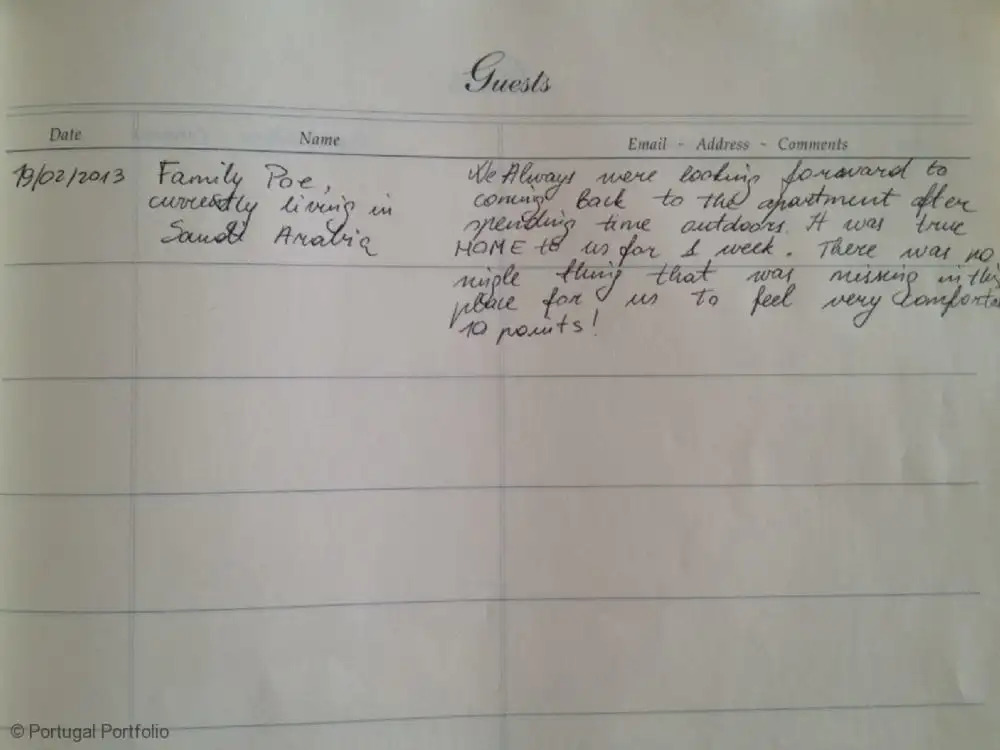 Guests
Date Name Email - Address - Comments
19/02/2013
Family Poe,
currently living in
Saudi Arabia
We Always were looking forward to
coming Back to the apartment after
spending time outdoors. It was true
HOME to us for 1 week. There was no
single thing that was missing in this
place for us to feel very Comforta
10 points!
© Portugal Portfolio